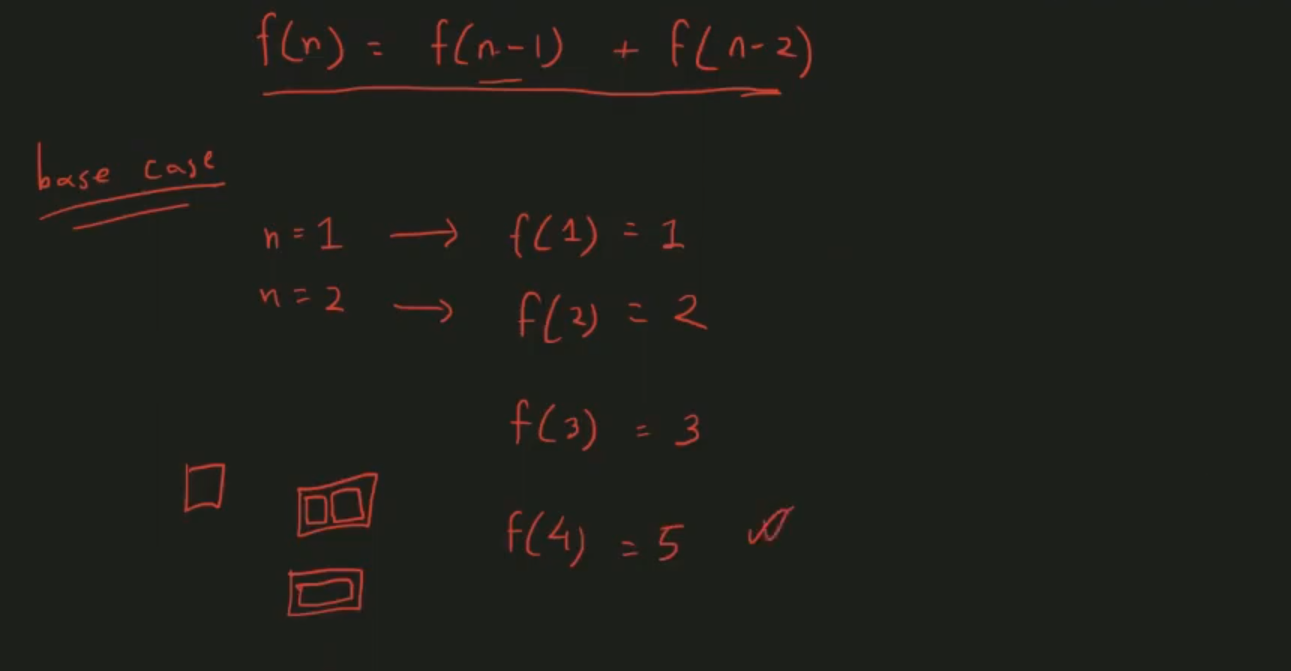 f(n) = f(n-1) + f(n-2)
base case
n = 1 → f(1) = 1
n = 2 → f(2) = 2
f(3) = 3
f(4) = 5